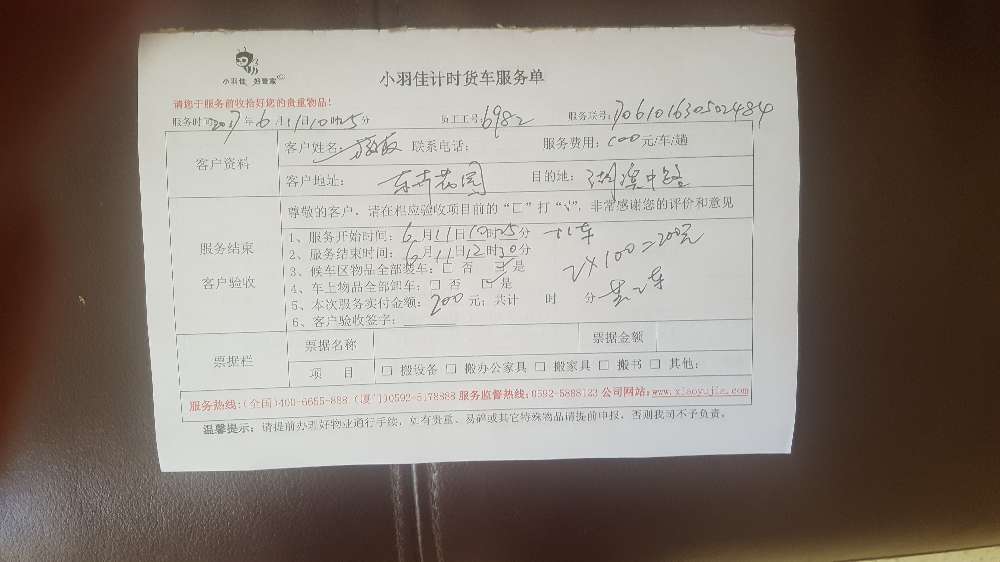 小羽佳 好管家
小羽佳计时货车服务单
请您于服务前收拾好您的贵重物品!
服务时间:2017年6月11日10时25分 员工工号:6982 服务联号:
客户资料
客户姓名: 联系电话: 服务费用: 元/车/趟
客户地址: 花园 目的地: 湖滨中路
尊敬的客户，请在相应验收项目前的“□”打“√”，非常感谢您的评价和意见
服务结束
客户验收
1、服务开始时间:6月11日10时25分
2、服务结束时间:6月11日12时30分
3、候车区物品全部装车:□ 否 ☑ 是
4、车上物品全部卸车:□ 否 ☑ 是
2×100=200元
5、本次服务实付金额:200元；共计 时 分 共2车
6、客户验收签字:
票据栏
票据名称 票据金额
项 目 □ 搬设备 □ 搬办公家具 □ 搬家具 □ 搬书 □ 其他:
服务热线:(全国)400-6655-888 服务监督热线:0592-5888123 公司网站:www.xiaoyujia.com
温馨提示: 请提前办理好物业通行手续，如有贵重、易碎或其它特殊物品请提前申报，否则我司不予负责。